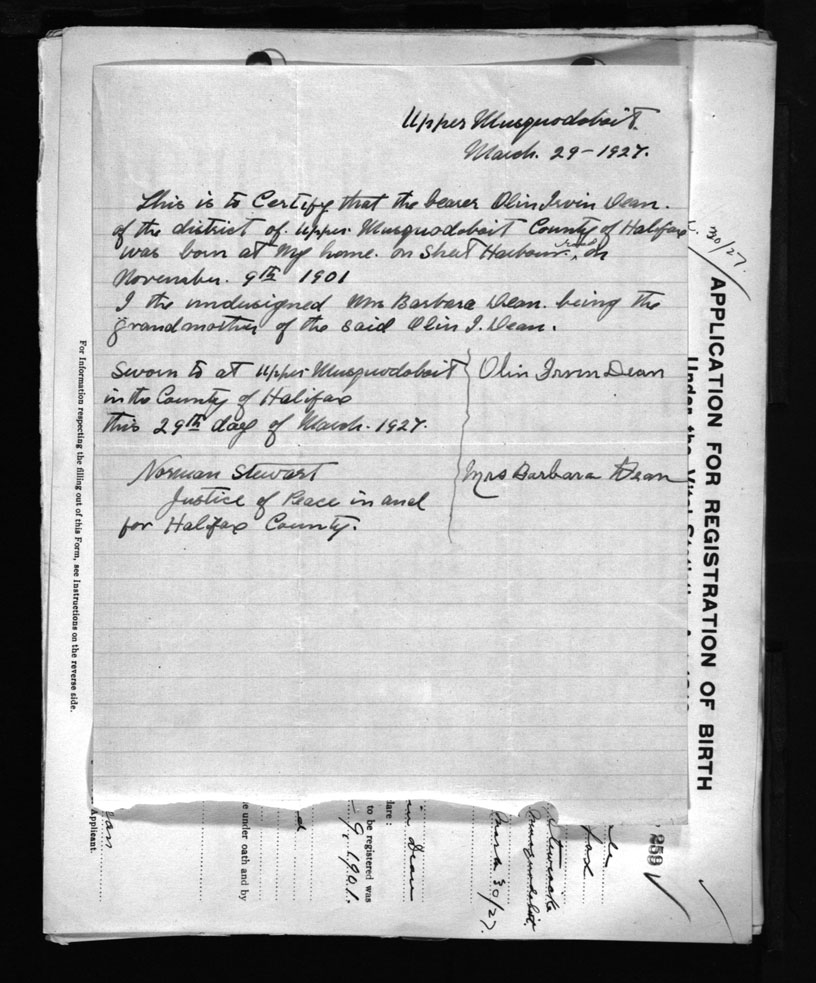 Upper Musquodoboit.
March. 29-1927.
This is to Certify that the bearer Olin Irvin Dean.
of the district of. Upper. Musquodoboit County of Halifax
was born at my home. on Sheet Harbour road, on
November. 9th 1901
I the undersigned Mrs Barbara Dean. being the
grandmother of the said Olin I. Dean.
Sworn to at Upper Musquodoboit
in the County of Halifax
this 29th day of March. 1927.
Olin Irvin Dean
Norman Stewart
Justice of Peace in and
for Halifax County.
Mrs Barbara Dean
30/27.
APPLICATION FOR REGISTRATION OF BIRTH
Under the Vital
259
fax
Musquodoboit,
30/27.
Dean
lare :
to be registered was
9, 1901.
d
e under oath and by
ean
Applicant.
For Information respecting the filling out of this Form, see Instructions on the reverse side.